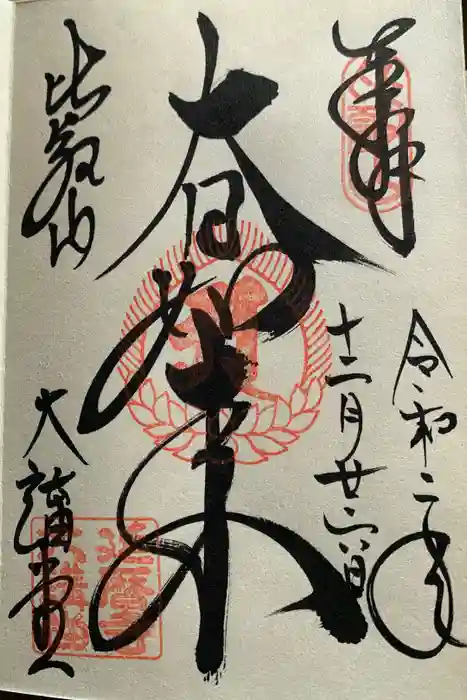 奉拝
令和二年
十二月廿六日
大日如来
比叡山
大講堂